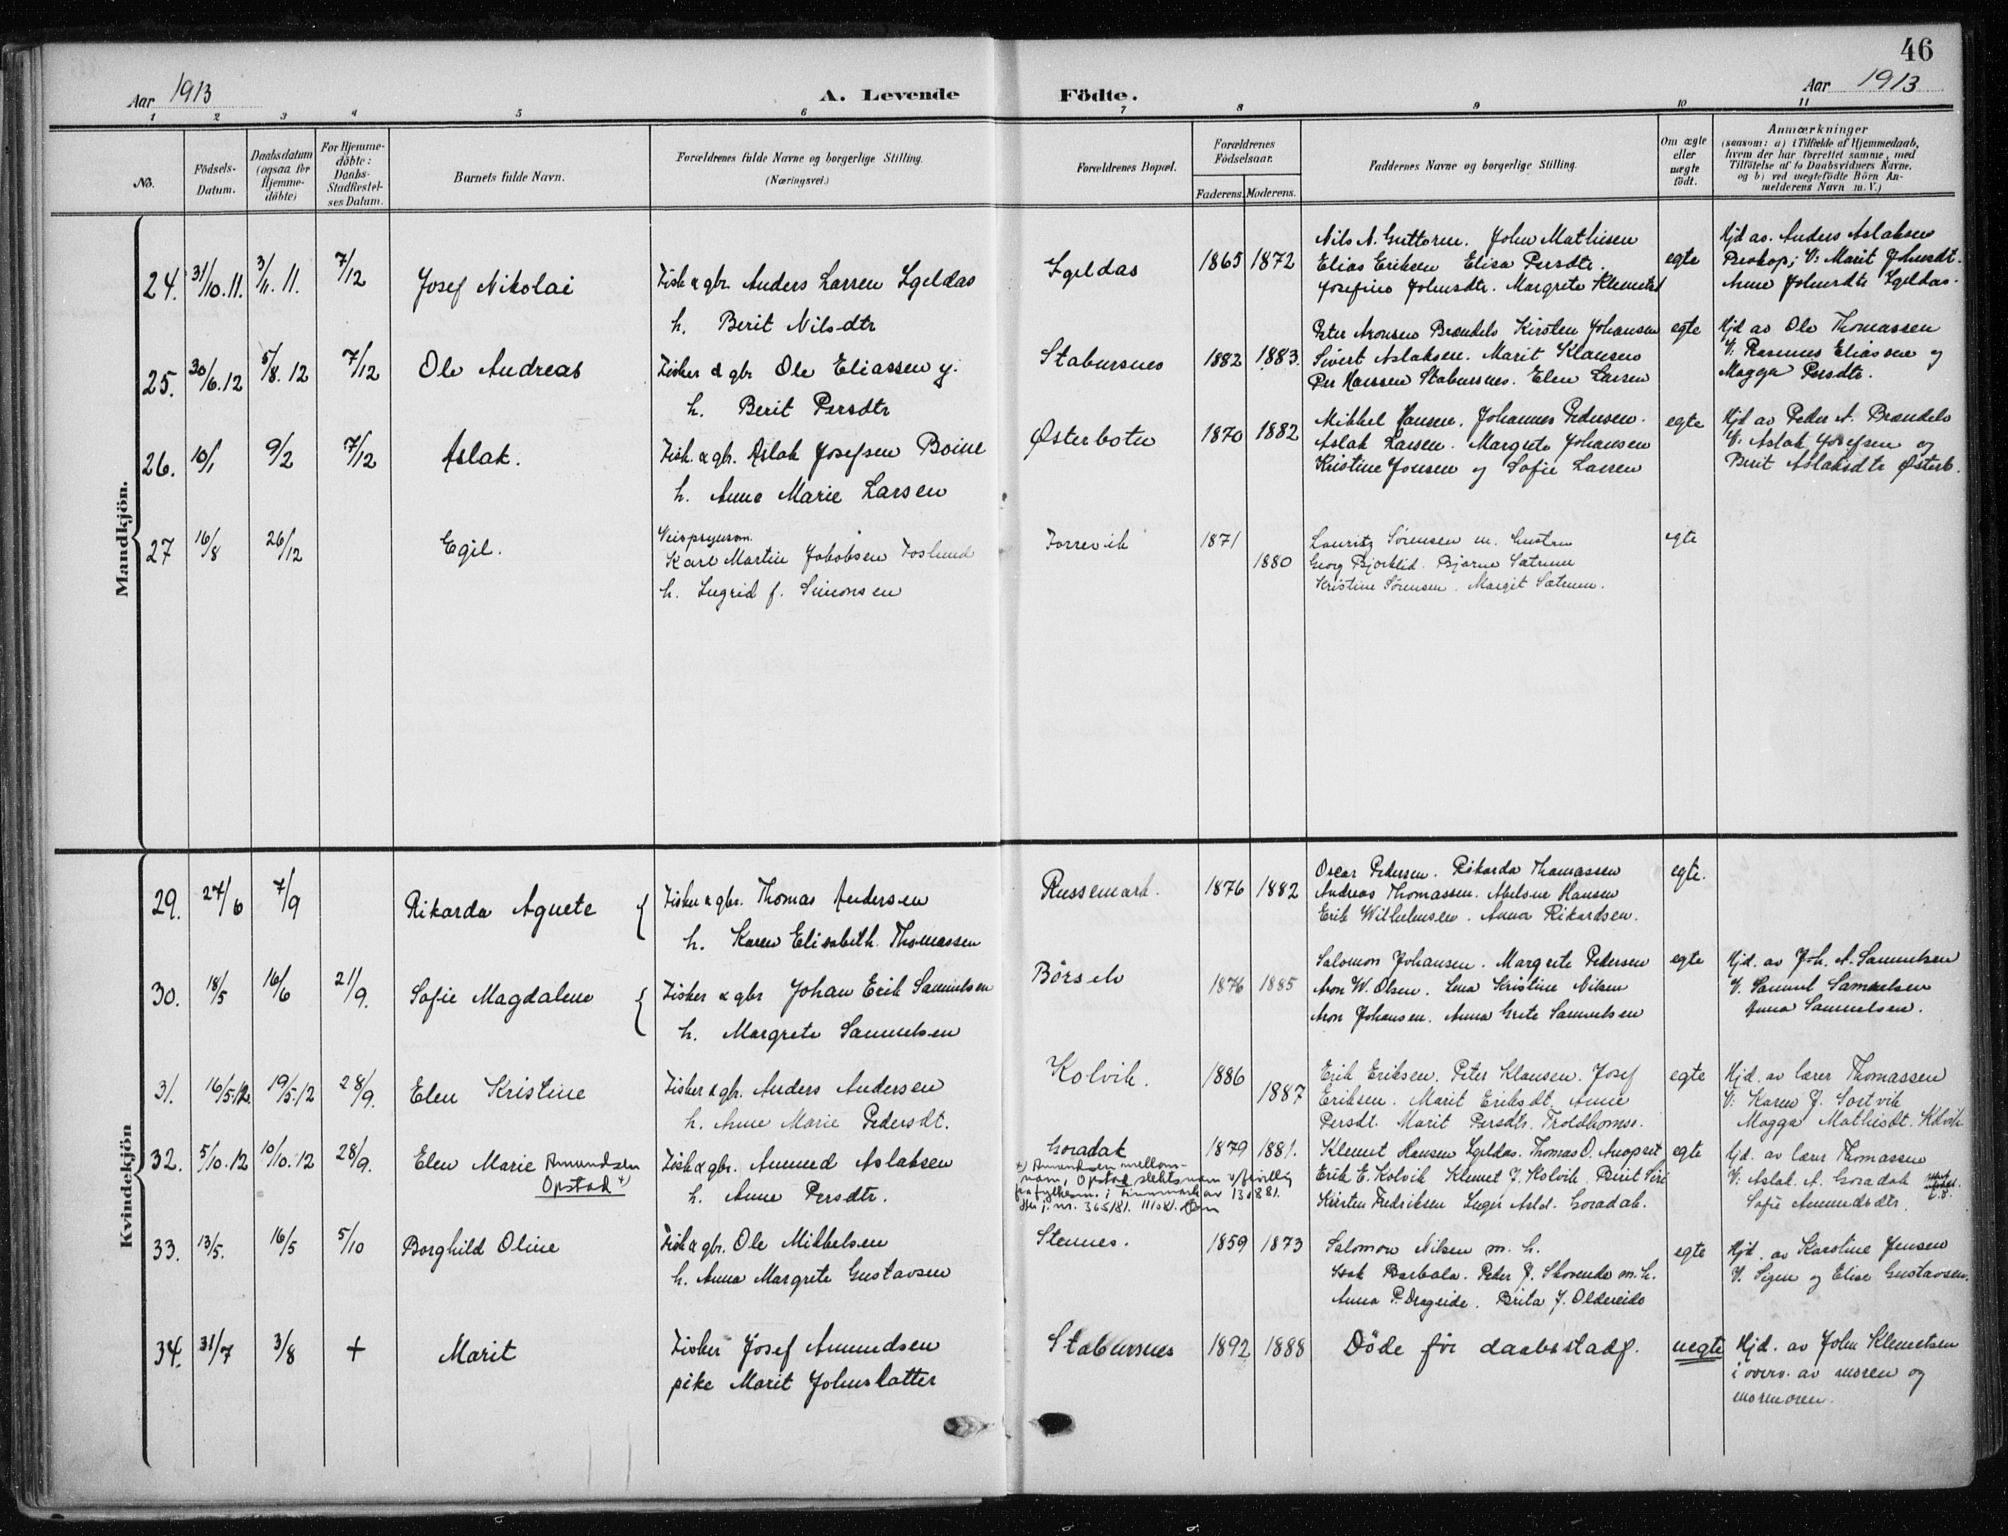 46
Aar 1913
A. Levende Födte.
Aar 1913
1 2 3 4 5 6 7 8 9 10 11
No.
Födsels-
Datum.
Daabsdatum
(ogsaa for
Hjemme-
döbte)
For Hjemme-
döbte:
Daabs-
Stadfæstel-
ses Datum.
Barnets fulde Navn.
Forældrenes fulde Navne og borgerlige Stilling.
(Næringsvei.)
Forældrenes Bopæl.
Forældrenes
Födselsaar.
Faderens. Moderens.
Faddernes Navne og borgerlige Stilling.
Om ægte
eller
uægte
født.
Anmærkninger
(saasom: a) i Tilfælde af Hjemmedaab,
hvem der har forrettet samme, med
Tilföielse af to Daabsvidners Navne,
og b) ved uægtefödte Börn An-
melderens Navn m. V.)
Mandkjön.
24. 31/10.11. 3/11.11. 7/12 Josef Nikolai
Fisk. & gbr. Anders Larsen Igeldas
h. Berit Nilsdtr
Igeldas 1865 1872
Nils N. Guttorm. John Mathisen
Elias Eriksen Elisa Persdtr.
Josefine Johnsdtr. Margrete Klemetsd
egte
Hjd av. Anders Aslaksen
V: Marit Johnsdt.
Anne Johnsdtr Igeldas.
25. 30/6.12 5/8.12 7/12 Ole Andreas
Fisker & gbr Ole Eliassen y.
h. Berit Persdtr
Stabursnes 1882 1883.
Peter Aronsen Brændels Kirsten Johansen
Sivert Aslaksen. Marit Klausen
Per Hanssen Stabursnes. Elen Larsen
egte
Hjd av Ole Thomassen
V: Rasmus Eliassen og
Magga Persdtr.
26. 10/1 9/2 7/12 Aslak.
Fisk. & gbr. Aslak Josefsen Boine
h. Anne Marie Larsen
Østerbotn 1870 1882
Mikkel Hansen. Johannes Pedersen.
Aslak Larsen. Margrete Johansen
Kristine Jonsen og Sofie Larsen
egte
Hjd av Peder A. Brændels
V: Aslak Josefsen og
Berit Aslaksdtr Østerb.
27 16/8 26/12 Egil.
Karl Martin Jakobsen
h. Ingrid f. Simonsen
Torrevik 1871 1880
Lauritz Sørensen m. hustru
Georg Bjørklid. Bjarne Sætrum
Kristine Sørensen. Margit Sætrum.
egte
Kvindekjön
29. 27/6 7/9 Rikarda Agnete
Fisker & gbr. Thomas Andersen
h. Karen Elisabeth Thomassen
Russemark. 1876 1882
Oscar Pedersen. Rikarda Thomassen
Andreas Thomassen. Abelone Hansen
Erik Wilhelmsen. Anna Rikardsen.
egte.
30. 18/5 16/6 21/9. Sofie Magdalene
Fisker & gbr Johan Erik Samuelsen
h. Margrete Samuelsen
Börselv 1876 1885
Salomon Johansen. Margrete Pedersen
Aron W. Olsen. Lena Kristine Nilsen
Aron Johansen. Anna Grete Samuelsen
egte
Hjd. av Joh. A. Samuelsen
V. Samuel Samuelsen
Anna Samuelsen.
31. 16/5.12 19/5.12 28/9. Elen Kristine
Fisker & gbr. Anders Andersen
h. Anne Marie Pedersdt.
Kolvik. 1886 1887
Erik Eriksen. Peter Klausen. Josef
Eriksen. Marit Eriksdt. Anne
Persdt. Marit Persdtr. Troldholmss.
egte
Hjd. av lærer Thomassen
V: Karen J. Sortvik
Magga Mathisdt. Kolvik
32. 5/10.12 10/10.12 28/9. Elen Marie Amundsen
Opstad x)
Fisk & gbr. Amund Aslaksen
h. Anne Persdtr.
Goradak 1879 1881.
x) Amundsen mellom-
navn, Opstad slektsnavn v/bevillg
fra fylkesm. i Finnmark av 130881.
ifter j. nr. 365/81. 111081.
Klemet Hansen Igeldas. Thomas O. Anopset
Erik E. Kolvik Klemet J. Kolvik. Birit Siri
Kirsten Fredriksen Inger Asld. Goradak.
egte
Hjd. av lærer Thomassen
V: Aslak A. Goradak
Sofie Amundsdtr.
33. 13/5. 16/5 5/10 Borghild Oline
Fisk & gbr. Ole Mikkelsen
h. Anna Margrete Gustavsen
Stennes. 1859 1873
Salomon Nilsen m. h.
Isak Barbala. Peder J. Skovende m. h.
Anna P. Drageide. Brita J. Oldereide
egte
Hjd. av Karoline Jensen
V. Signe og Elise Gustavsen.
34. 31/7 3/8 + Marit
Fisker Josef Amundsen
pike Marit Johnsdatter
Stabursnes 1892 1888
Döde för daabsstadf.
uegte
Hjd. av John Klemetsen
i overv. av moren og
mormoren.